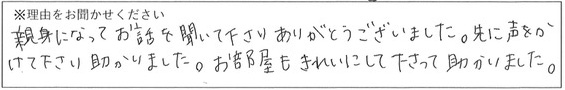 ※理由をお聞かせください
親身になってお話を聞いて下さりありがとうございました。先に声をか
けて下さり助かりました。お部屋もきれいにして下さって助かりました。